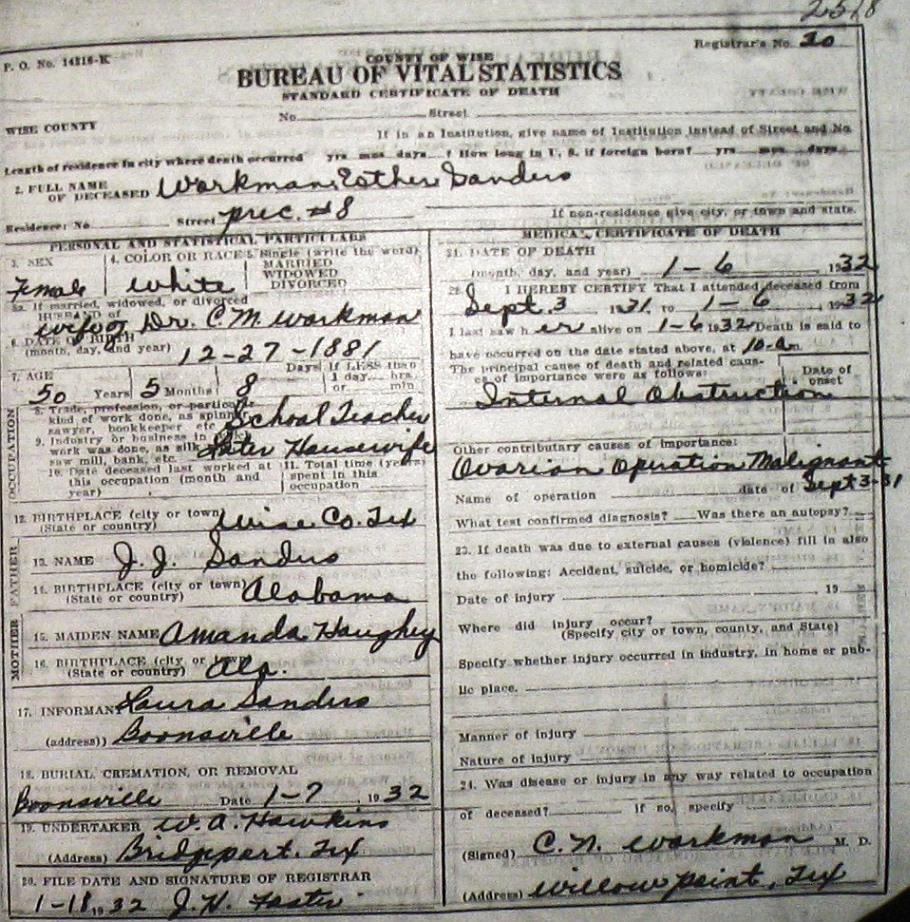 2518
Registrar's No. 20
P. O. No. 14216-K
COUNTY OF WISE
BUREAU OF VITAL STATISTICS
STANDARD CERTIFICATE OF DEATH
No. Street
WISE COUNTY
If in an Institution, give name of Institution instead of Street and No
Length of residence in city where death occurred yrs mos days ? How long in U. S. if foreign born? yrs mos days
2. FULL NAME
OF DECEASED Workman, Esther Sanders
Residence: No Street prec. #8 If non-residence give city, or town and state.
PERSONAL AND STATISTICAL PARTICULARS
3. SEX 4. COLOR OR RACE 5. Single (write the word)
MARRIED
WIDOWED
DIVORCED
Female White
5a. If married, widowed, or divorced
HUSBAND of
wife of Dr. C. M. Workman
6. DATE OF BIRTH
(month, day, and year) 12-27-1881
7. AGE Days If LESS than
1 day hrs.
or min
50 Years 5 Months 8
OCCUPATION
8. Trade, profession, or particular
kind of work done, as spinner,
sawyer, bookkeeper etc School Teacher
9. Industry or business in
work was done, as silk
saw mill, bank, etc. later Housewife
10. Date deceased last worked at
this occupation (month and
year)
11. Total time (years)
spent in this
occupation
12. BIRTHPLACE (city or town)
(State or country) Wise Co. Tex
FATHER
13. NAME J. J. Sanders
14. BIRTHPLACE (city or town)
(State or country) Alabama
MOTHER
15. MAIDEN NAME Amanda Haughey
16. BIRTHPLACE (city or town)
(State or country) Ala.
17. INFORMANT Laura Sanders
(address)) Boonsville
18. BURIAL, CREMATION, OR REMOVAL
Boonsville Date 1-7 1932
19. UNDERTAKER W. A. Hawkins
(Address) Bridgeport. Tex
20. FILE DATE AND SIGNATURE OF REGISTRAR
1-18, 1932 J. H. Foster
MEDICAL CERTIFICATE OF DEATH
21. DATE OF DEATH
(month, day, and year) 1-6 1932
22. I HEREBY CERTIFY That I attended deceased from
Sept. 3 1931, to 1-6 1932
I last saw her alive on 1-6 1932 Death is said to
have occurred on the date stated above, at 10 a m.
The principal cause of death and related cau-
es of importance were as follows:
Date of
onset
Internal Obstruction
Other contributary causes of importance:
Ovarian Operation Malignant
Name of operation date of Sept 3-31
What test confirmed diagnosis? Was there an autopsy?
23. If death was due to external causes (violence) fill in also
the following: Accident, suicide, or homicide?
Date of injury 19
Where did injury occur?
(Specify city or town, county, and State)
Specify whether injury occurred in industry, in home or pub-
lic place.
Manner of injury
Nature of injury
24. Was disease or injury in any way related to occupation
of deceased? if so, specify
(Signed) C. N. Workman M. D.
(Address) Willow point, Tex